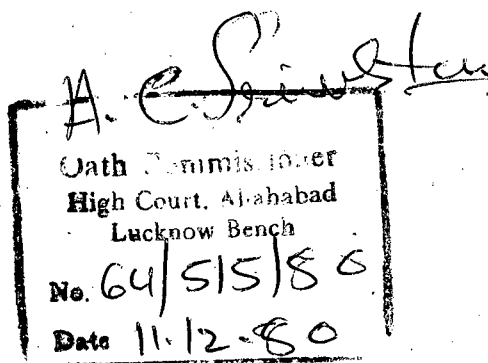 A. C. Srivastav
Oath Commissioner
High Court, Allahabad
Lucknow Bench
No. 64/515/80
Date 11.12.80